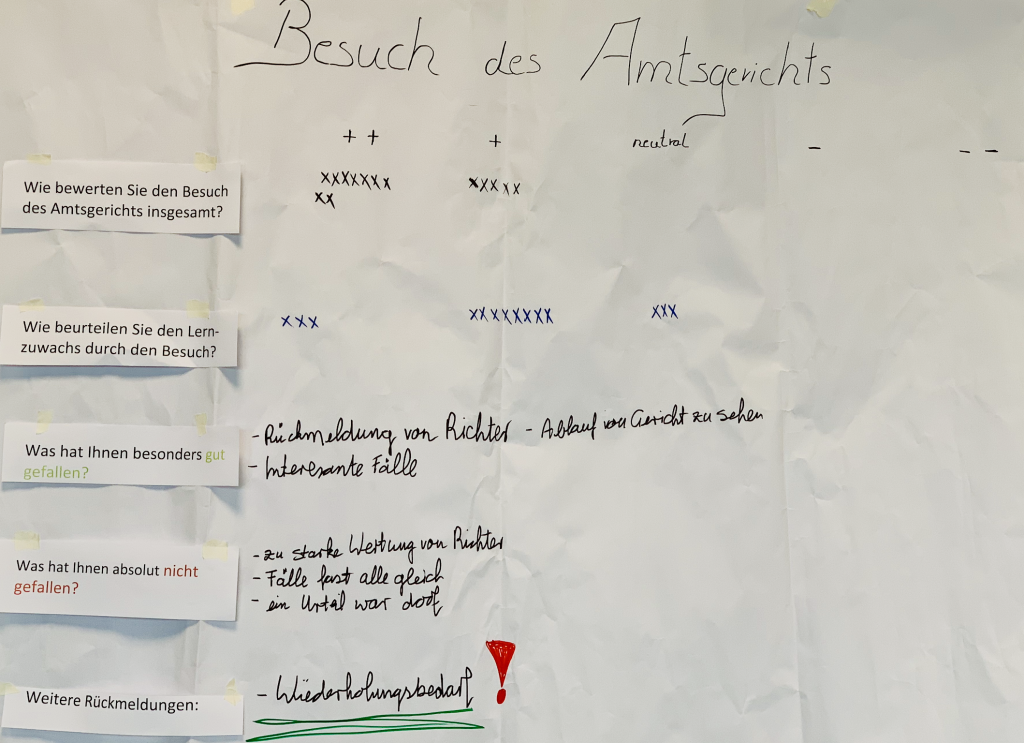 Besuch des Amtsgerichts
+ + + neutral - - -
Wie bewerten Sie den Besuch
des Amtsgerichts insgesamt?
xxxxxxx xxxxx
xx
Wie beurteilen Sie den Lern-
zuwachs durch den Besuch?
xxx xxxxxxxx xxx
Was hat Ihnen besonders gut
gefallen?
- Rückmeldung von Richter - Ablauf von Gericht zu sehen
- Interesante Fälle
Was hat Ihnen absolut nicht
gefallen?
- zu starke Wertung von Richter
- Fälle fast alle gleich
- ein Urtal war doof
Weitere Rückmeldungen:
- Wiederholungsbedarf !